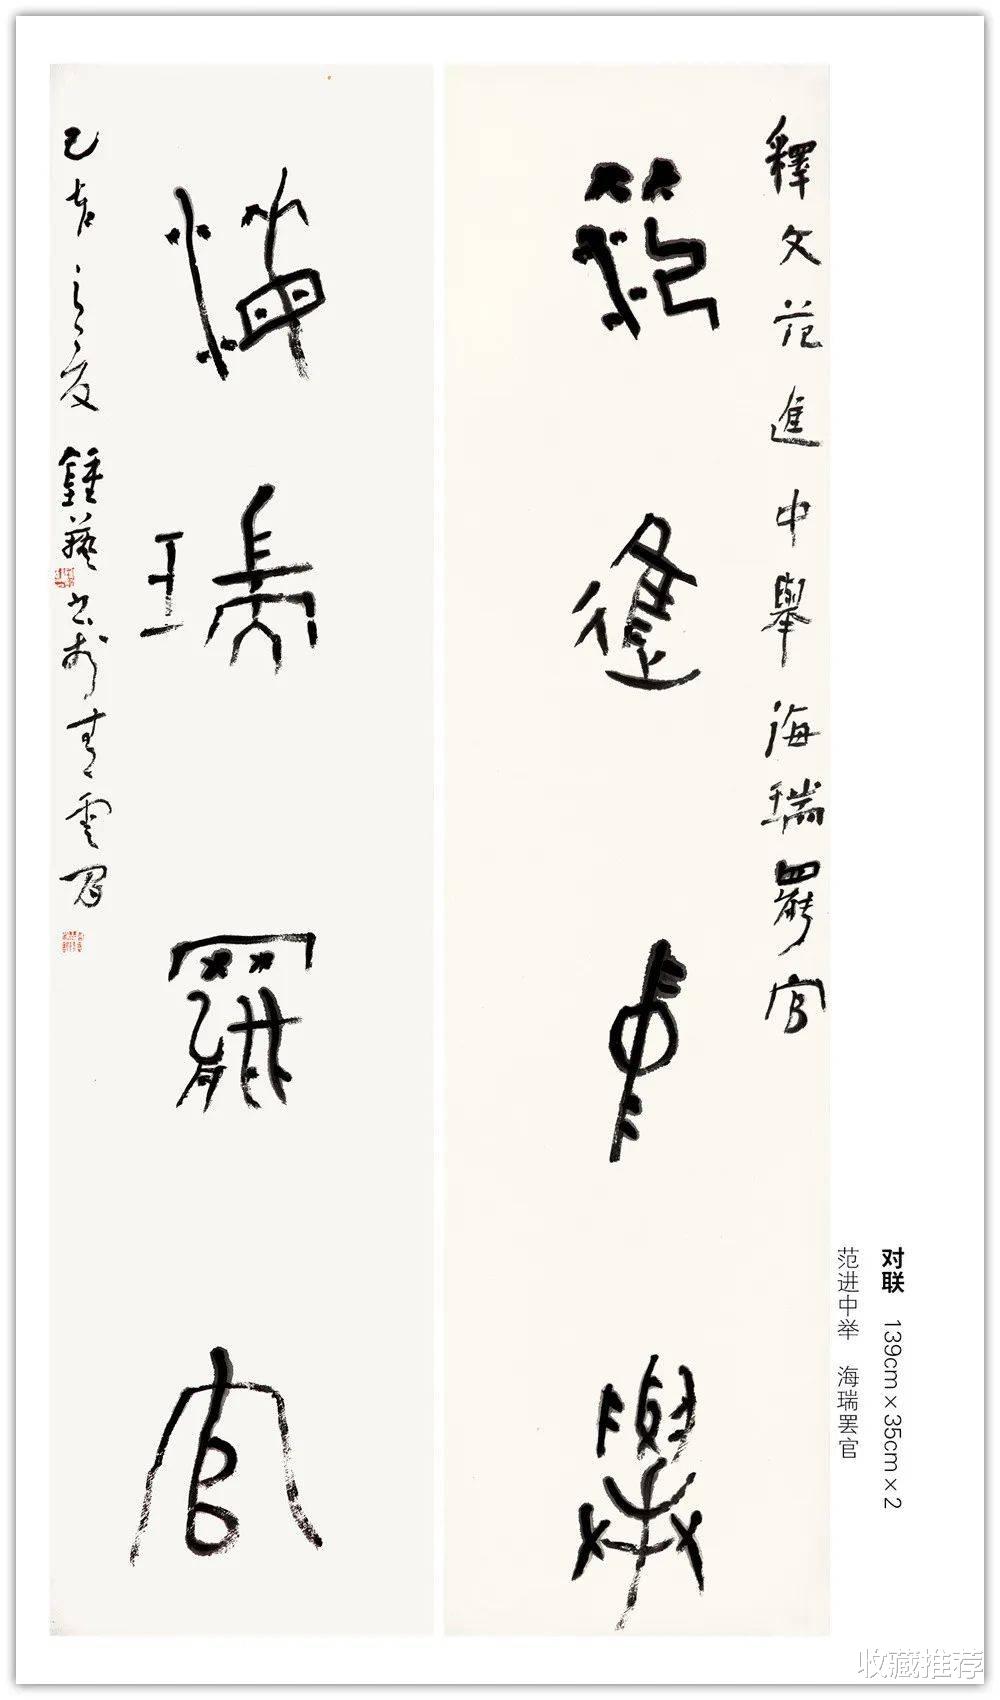 对联 139cm×35cm×2
范进中举 海瑞罢官
釋文范進中舉海瑞罷官
范進中舉
海瑞罷官
之夏鍾藝书於青雲閣
收藏推荐